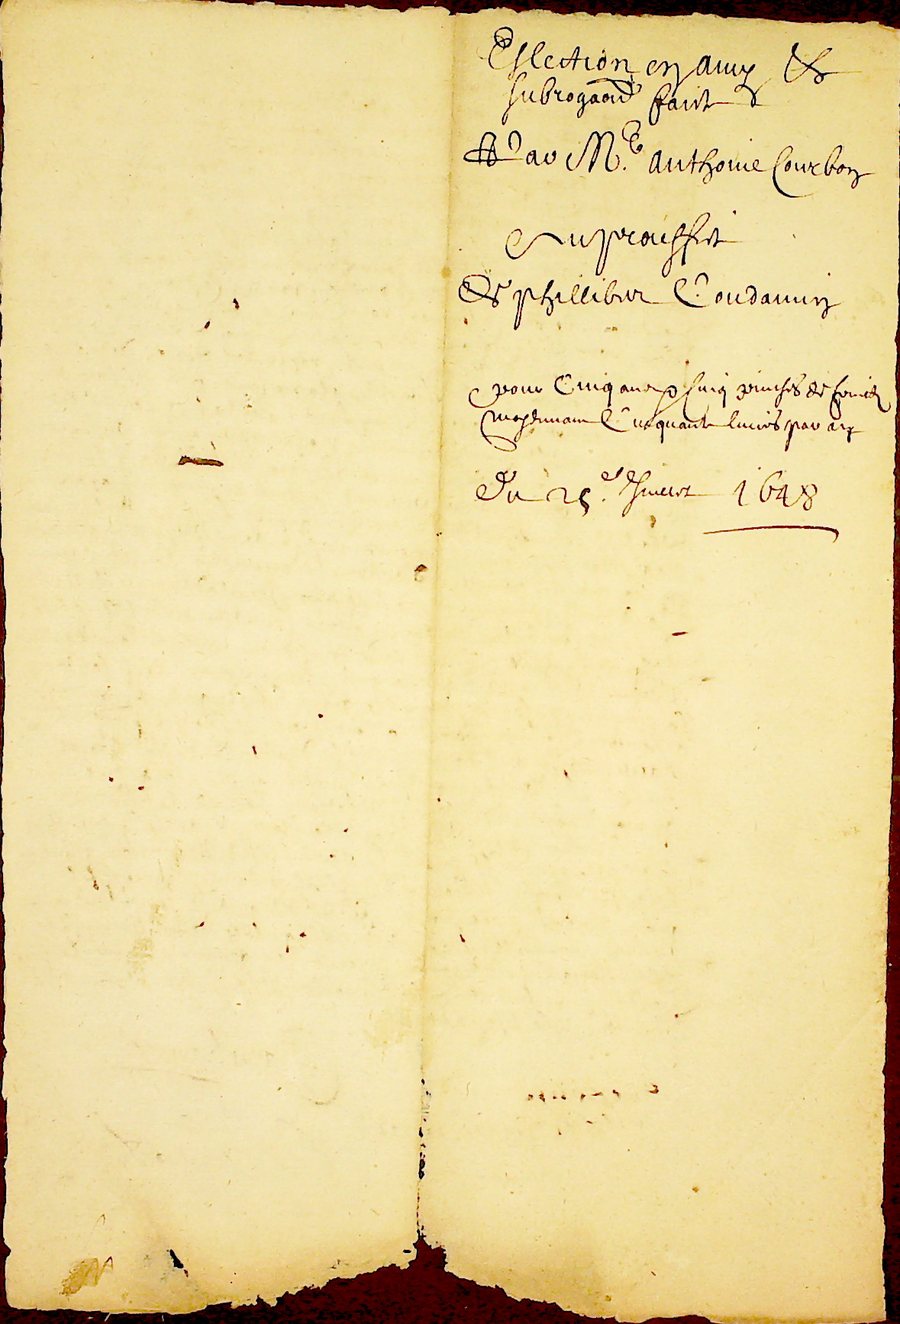 Eslection en amy &
subrogaōn faict
Par Mr. Anthoine Courbon
Au prouffict
de phillibert Condamin
pour Cinq ans Cinq prinses de fruictz
moyennant Cinquante livres par an
Du 25e Juillet 1648